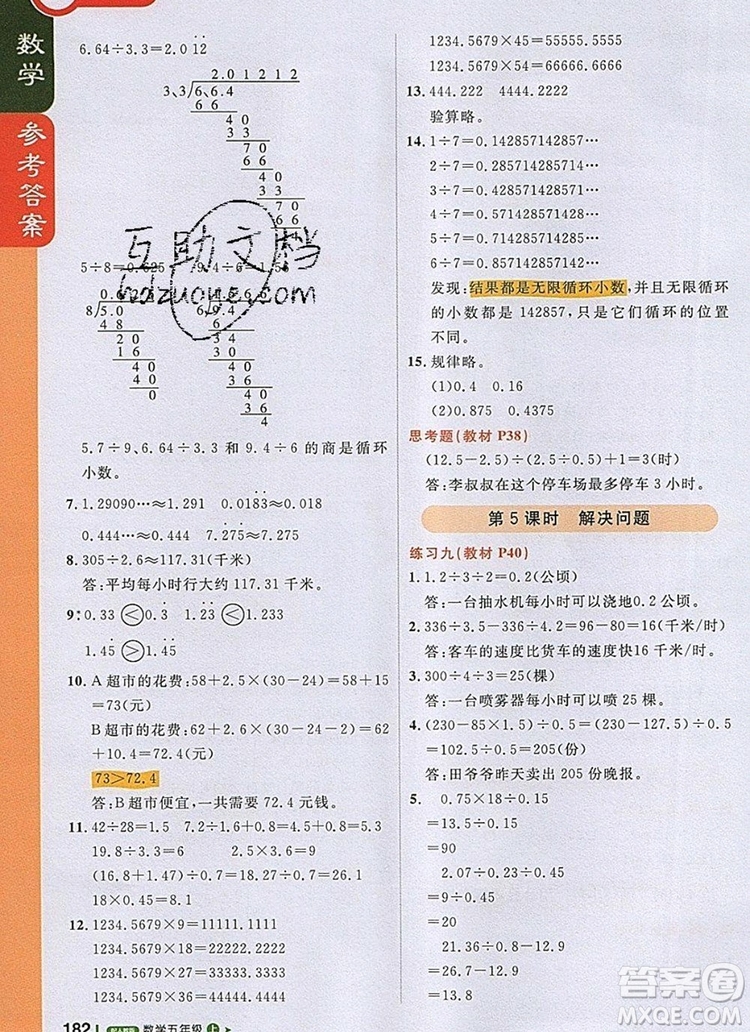 数学
参考答案
6.64÷3.3=2.0 1̇2̇
2.0 1 2 1 2
3,3 6,6.4
6 6
4 0
3 3
7 0
6 6
4 0
3 3
7 0
6 6
4
5÷8=0.625
9.4÷6=1.5
8 5.0
4 8
2 0
1 6
4 0
4 0
0
6 9.4
6
3 4
3 0
4 0
3 6
4 0
3 6
4
互助文档
hdzuoye.com
5.7÷9、6.64÷3.3 和 9.4÷6 的商是循环
小数。
7. 1.29090…≈1.291 0.01̇83̇≈0.018
0.444…≈0.444 7.2̇75̇≈7.275
8. 305÷2.6≈117.31(千米)
答:平均每小时行大约 117.31 千米。
数学五年级 上
1234.5679×45=55555.5555
1234.5679×54=66666.6666
13. 444.222 4444.2222
验算略。
14. 1÷7=0.142857142857…
2÷7=0.285714285714…
3÷7=0.428571428571…
4÷7=0.571428571428…
5÷7=0.714285714285…
6÷7=0.857142857142…
发现:结果都是无限循环小数,并且无限循环
的小数都是 142857,只是它们循环的位置
不同。
15. 规律略。
(1)0.4 0.16
(2)0.875 0.4375
思考题(教材 P38)
(12.5-2.5)÷(2.5÷0.5)+1=3(时)
答:李叔叔在这个停车场最多停车 3 小时。
第 5 课时 解决问题
练习九(教材 P40)
1. 1.2÷3÷2=0.2(公顷)
答:一台抽水机每小时可以浇地0.2 公顷。
2. 336÷3.5-336÷4.2=16(千米/时)
答:客车的速度比货车的速度快16 千米/时。
3. 300÷4÷3=25(棵)
答:一台喷雾器每小时可以喷 25 棵。
4. (230-85×1.5)÷0.5=(230-127.5)÷0.5
=102.5÷0.5=205(份)
答:田爷爷昨天卖出 205 份晚报。
5. 0.75×18÷0.15
=13.5÷0.15
=90
2.07÷0.23÷0.45
=9÷0.45
=20
21.36÷0.8-12.9
=26.7-12.9
9. 0.33 < 0.3̇ 1.23̇ < 1.233
1.45 > 1.4̇5̇ 
10. A 超市的花费:58+2.5×(30-24)=58+15
=73(元)
B 超市的花费:62+2.6×(30-26)=62
+10.4=72.4(元)
73>72.4
答:B 超市便宜,一共需要 72.4 元钱。
11. 42÷28=1.5 7.2÷1.2+0.8=6.8
19.8÷3.3=6 2.5×3.6=9
(16.8+1.47)÷0.7=26.1
18×0.45=8.1
12. 1234.5679×9=11111.1111
1234.5679×18=22222.2222
1234.5679×27=33333.3333
1234.5679×36=44444.4444
182
答案圈
MXQE.COM